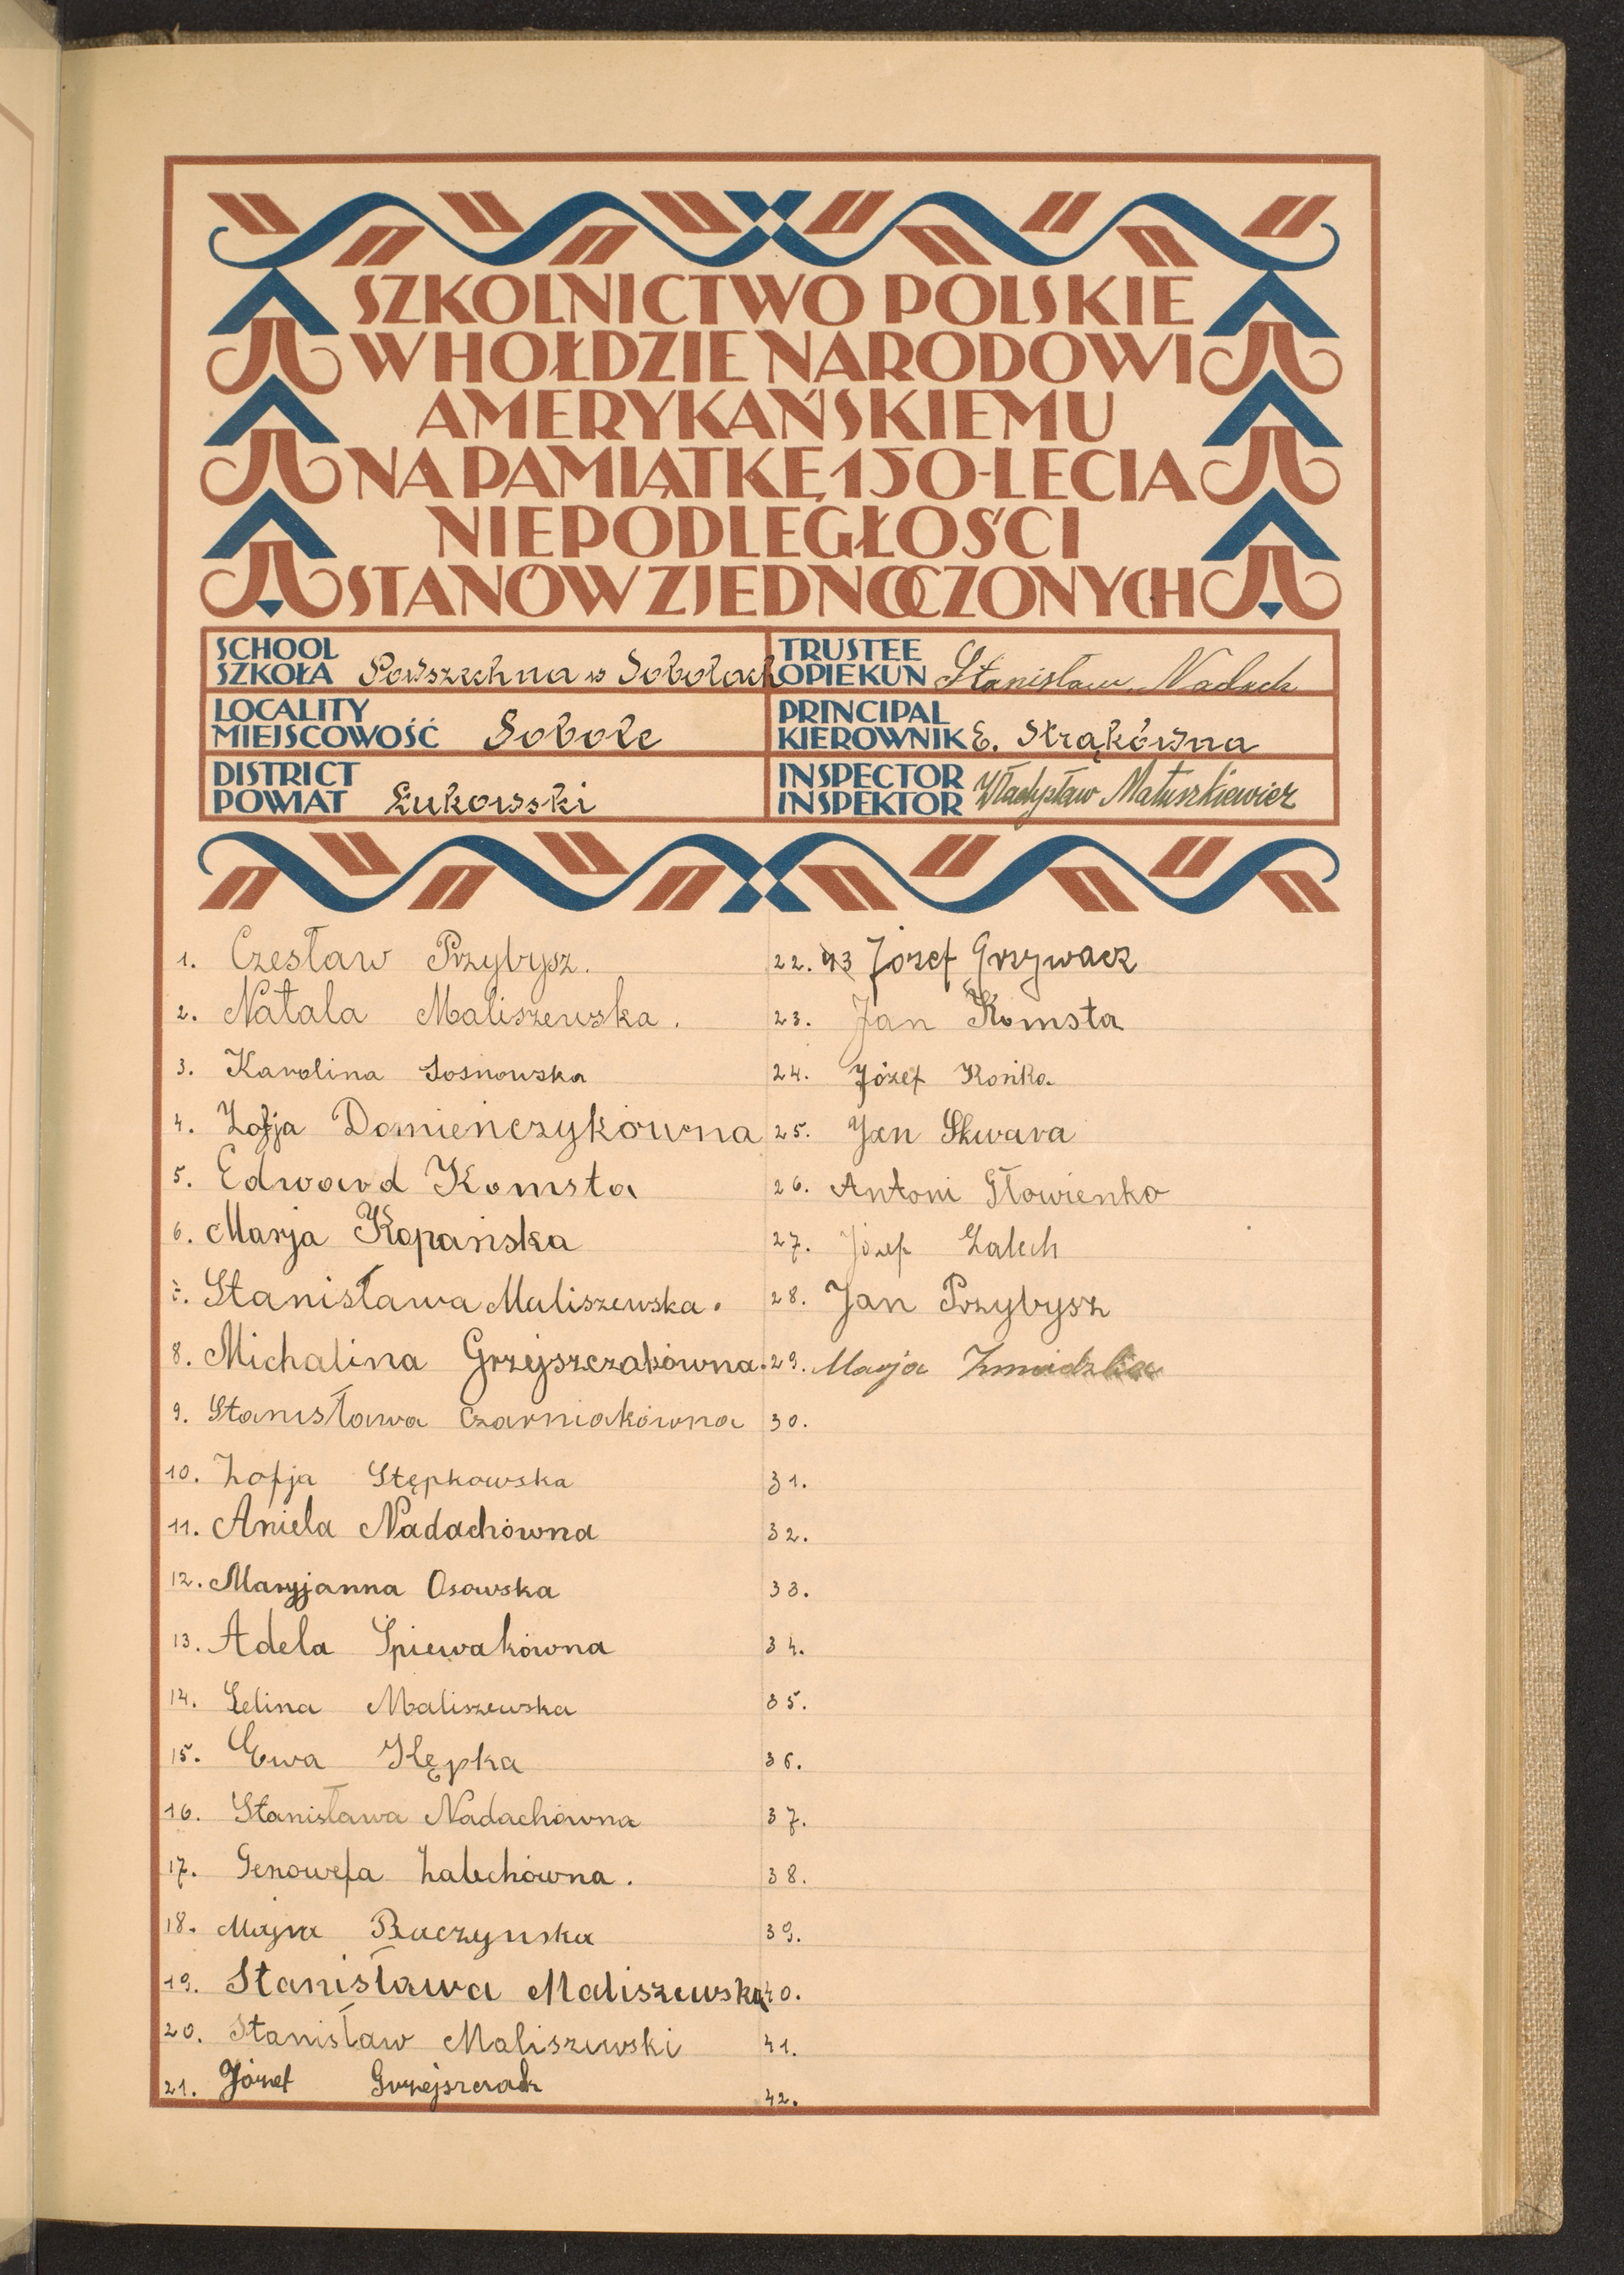 SZKOLNICTWO POLSKIE
W HOŁDZIE NARODOWI
AMERYKAŃSKIEMU
NA PAMIĄTKĘ 150-LECIA
NIEPODLEGŁOŚCI
STANÓW ZJEDNOCZONYCH
SCHOOL
SZKOŁA Powszechna w Sobolach
TRUSTEE
OPIEKUN Stanisław Nadach
LOCALITY
MIEJSCOWOŚĆ Sobole
PRINCIPAL
KIEROWNIK E. Strąkówna
DISTRICT
POWIAT Łukowski
INSPECTOR
INSPEKTOR Władysław Matuszkiewicz
1. Czesław Przybysz.
2. Natala Maliszewska.
3. Karolina Sosnowska
4. Zofja Domieńczykówna
5. Edward Komsta
6. Marja Kopańska
7. Stanisława Maliszewska.
8. Michalina Grzejszczakówna.
9. Stanisława Czarniakówna
10. Zofja Stępkowska
11. Aniela Nadachówna
12. Maryjanna Osowska
13. Adela Śpiewakówna
14. Celina Maliszewska
15. Ewa Klępka
16. Stanisława Nadachówna
17. Genowefa Zalechówna.
18. Majra Buczynska
19. Stanisława Maliszewska
20. Stanisław Maliszewski
21. Józef Grzejszczak
22. Józef Grzywacz
23. Jan Komsta
24. Józef Końka
25. Jan Skwara
26. Antoni Głowienko
27. Józef Zalech
28. Jan Przybysz
29. Marja
30.
31.
32.
33.
34.
35.
36.
37.
38.
39.
40.
41.
42.